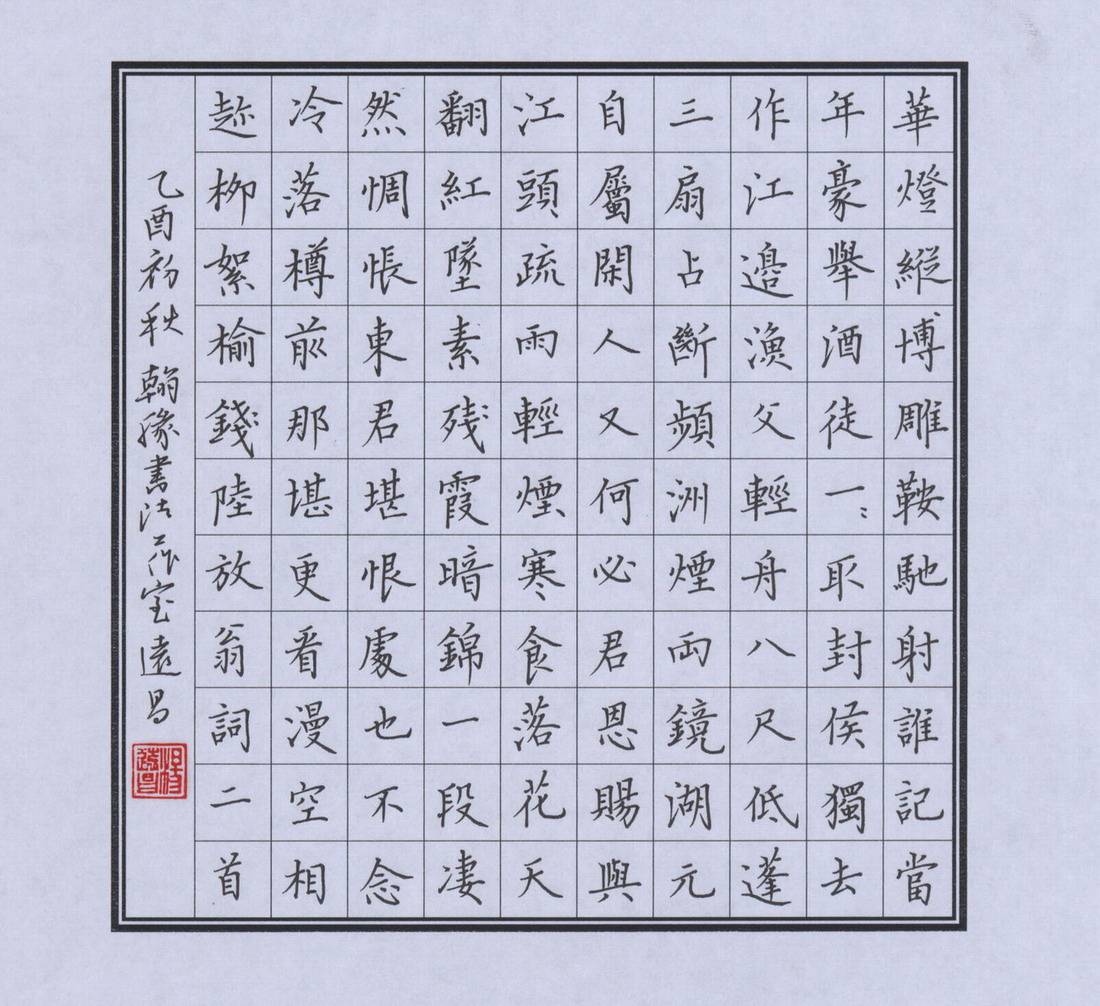 華燈縱博雕鞍馳射誰記當
年豪舉酒徒一〻取封侯獨去
作江邊漁父輕舟八尺低蓬
三扇占斷蘋洲煙雨鏡湖元
自屬閑人又何必君恩賜與
江頭疏雨輕煙寒食落花天
翻紅墜素殘霞暗錦一段淒
然惆悵東君堪恨處也不念
冷落樽前那堪更看漫空相
趂柳絮榆錢陸放翁詞二首
乙酉初秋翰緣書法茶室遠昌